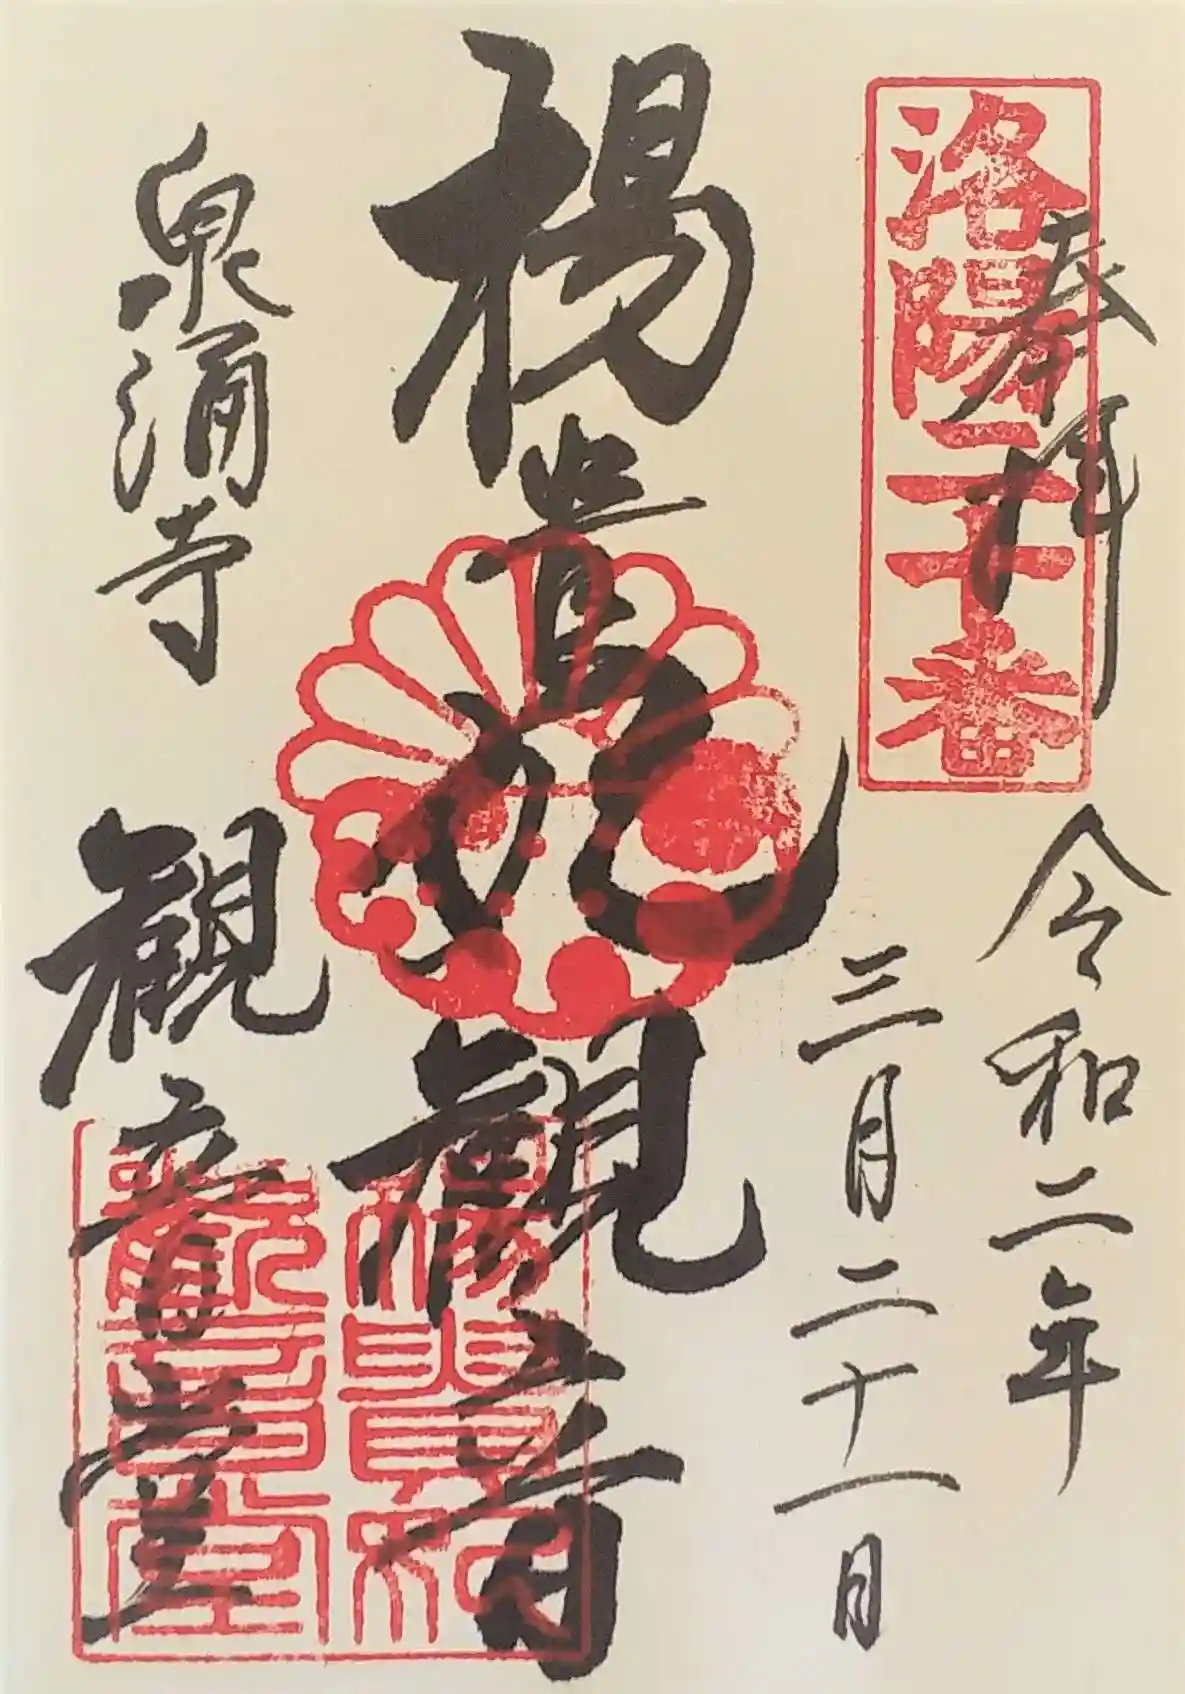 洛陽二十番
奉拝
令和二年
三月二十一日
楊貴妃観音
泉涌寺
観音堂
楊貴妃
観音堂